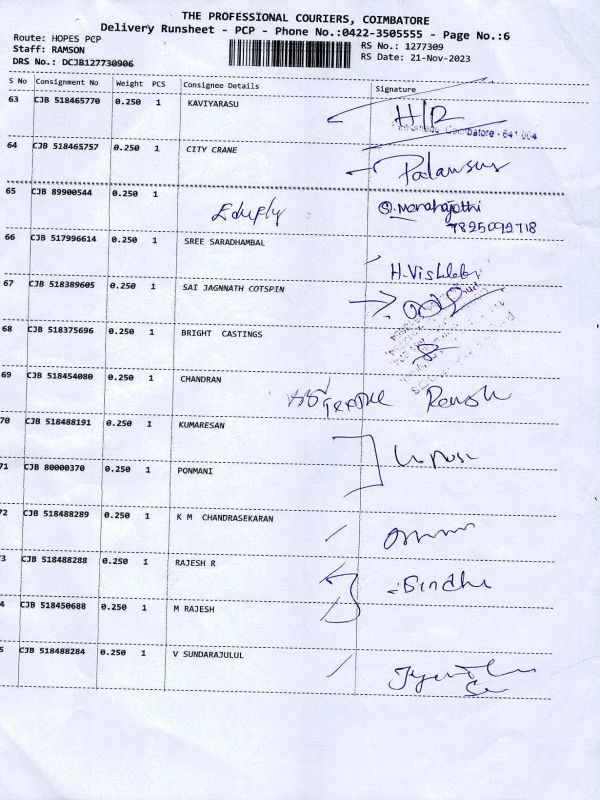 THE PROFESSIONAL COURIERS, COIMBATORE
Delivery Runsheet - PCP - Phone No.:0422-3505555 - Page No.:6
Route: HOPES PCP
Staff: RAMSON
DRS No.: DCJB127730906
RS No.: 1277309
RS Date: 21-Nov-2023
S No Consignment No Weight PCS Consignee Details Signature
63 CJB 518465770 0.250 1 KAVIYARASU H/R
Coimbatore - 641 004
64 CJB 518465757 0.250 1 CITY CRANE
65 CJB 89900544 0.250 1
7825092718
66 CJB 517996614 0.250 1 SREE SARADHAMBAL
67 CJB 518389605 0.250 1 SAI JAGNNATH COTSPIN
68 CJB 518375696 0.250 1 BRIGHT CASTINGS
69 CJB 518454080 0.250 1 CHANDRAN
70 CJB 518488191 0.250 1 KUMARESAN
71 CJB 80000370 0.250 1 PONMANI
72 CJB 518488289 0.250 1 K M CHANDRASEKARAN
3 CJB 518488288 0.250 1 RAJESH R Sindhu
4 CJB 518450688 0.250 1 M RAJESH
5 CJB 518488284 0.250 1 V SUNDARAJULUL